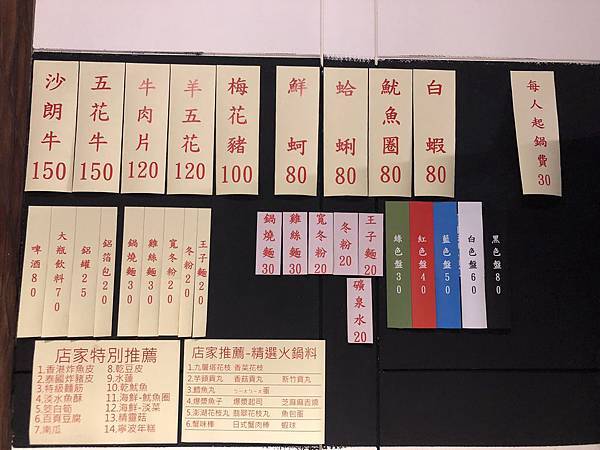 沙朗牛 150
五花牛 150
牛肉片 120
羊五花 120
梅花豬 100
鮮蚵 80
蛤蜊 80
魷魚圈 80
白蝦 80
每人起鍋費 30
啤酒 80
大瓶飲料 70
鋁罐 25
鋁箔包 20
鍋燒麵 30
雞絲麵 30
寬冬粉 20
冬粉 20
王子麵 20
鍋燒麵 30
雞絲麵 30
寬冬粉 20
冬粉 20
王子麵 20
礦泉水 20
綠色盤 30
紅色盤 40
藍色盤 50
白色盤 60
黑色盤 80
店家特別推薦
1.香港炸魚皮 8.乾豆皮
2.泰國炸豬皮 9.水蓮
3.特級麵筋 10.乾魷魚
4.淡水魚酥 11.海鮮-魷魚圈
5.茭白筍 12.海鮮-淡菜
6.百頁豆腐 13.精靈菇
7.南瓜 14.寧波年糕
店家推薦-精選火鍋料
1.九層塔花枝 香菜花枝
2.芋頭貢丸 香菇貢丸 新竹貢丸
3.鱈魚丸
4.爆漿魚子 爆漿起司 芝麻麻吉燒
5.澎湖花枝丸 翡翠花枝丸 魚包蛋
6.蟹味棒 日式蟹肉棒 蝦球